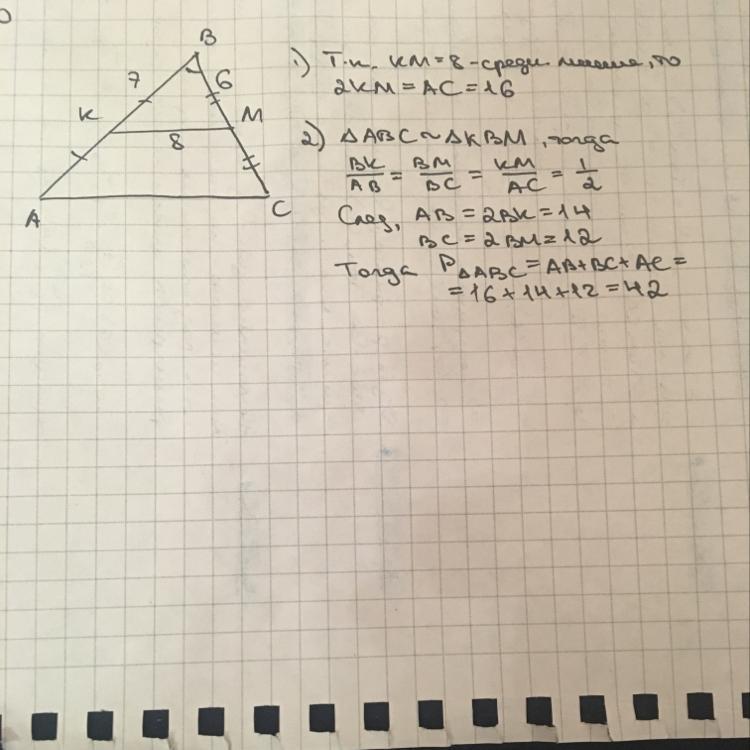 B
7
6
K
M
8
A
C
1) Т.к. KM = 8 - средн. линия, то
2KM = AC = 16
2) △ABC ~ △KBM, тогда
BK/AB = BM/BC = KM/AC = 1/2
След, AB = 2BK = 14
BC = 2BM = 12
Тогда P△ABC = AB + BC + AC =
= 16 + 14 + 12 = 42